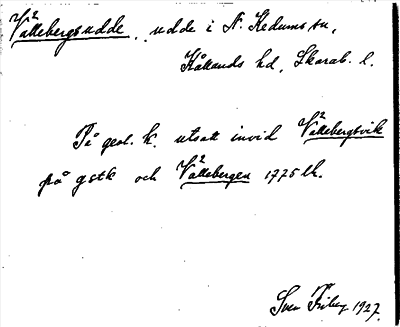 Vallebergsudde, udde i N. Kedums sn,
Kållands hd, Skarab. l.
På geol. k. utsatt invid Vallebergsvik
på gstk och Vallebergen 1775 lk.
Sven Friberg 1927.